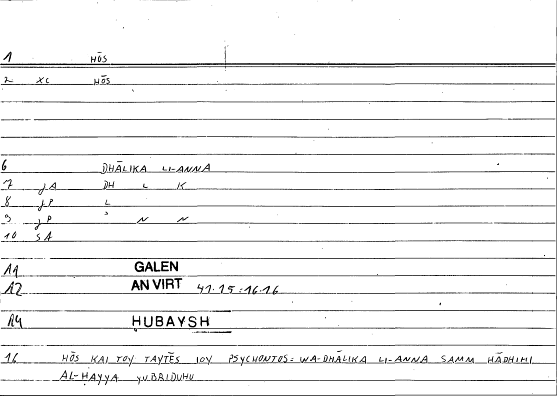 1 HŌS
2 XC HŌS
6 DHĀLIKA LI-ANNA
7 JA DH L K
8 JP L
9 JP ʾ N N
10 SA
A1 GALEN
A2 AN VIRT 41.15 = 16.16
A4 HUBAYSH
16 HŌS KAI TOY TAYTĒS IOY PSYCHONTOS = WA-DHĀLIKA LI-ANNA SAMM HĀDHIHI
AL-ḤAYYA YUBRIDUHU